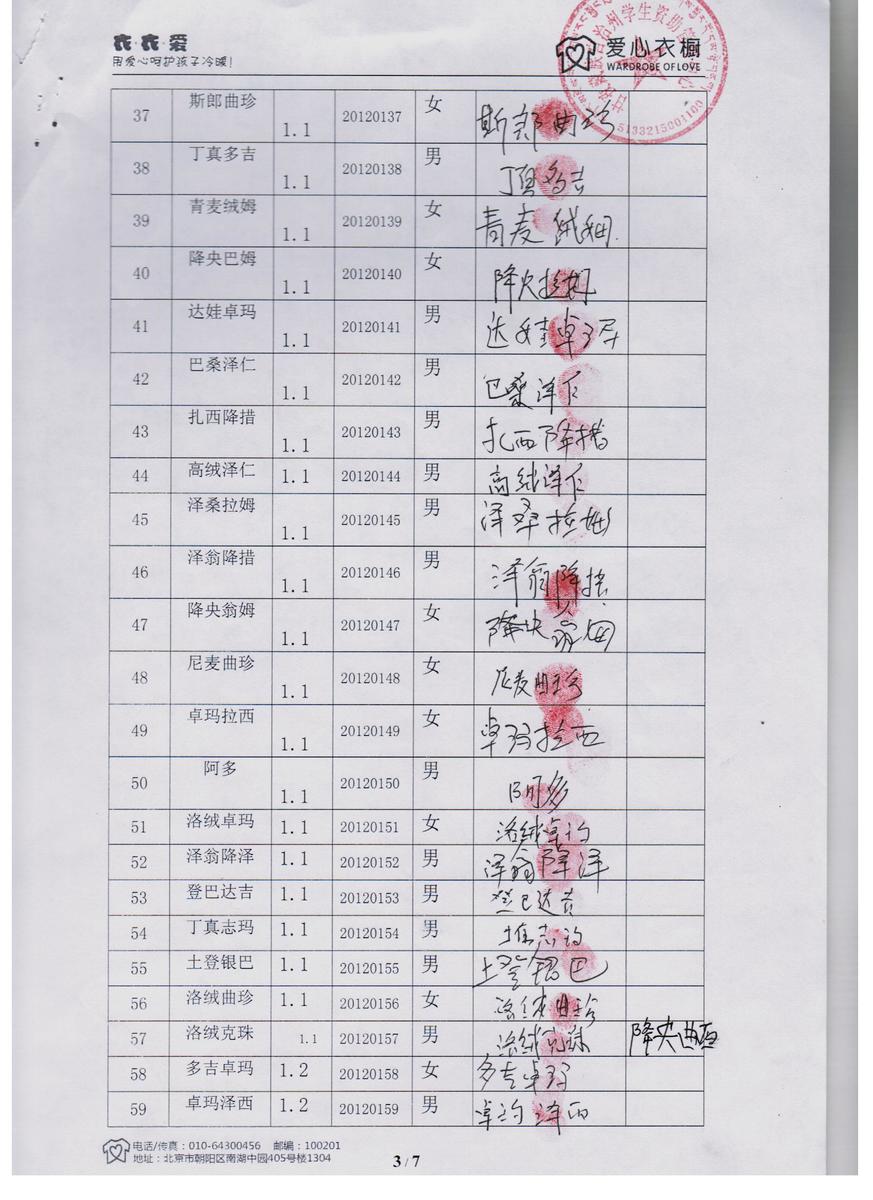 衣·衣·爱
用爱心呵护孩子冷暖！
爱心衣橱
WARDROBE OF LOVE
甘孜藏族自治州学生资助管理中心
5133215001100
37 斯郎曲珍 1.1 20120137 女 斯郎曲珍
38 丁真多吉 1.1 20120138 男 丁真多吉
39 青麦绒姆 1.1 20120139 女 青麦绒姆.
40 降央巴姆 1.1 20120140 女 降央拉姆
41 达娃卓玛 1.1 20120141 男 达娃卓玛
42 巴桑泽仁 1.1 20120142 男 巴桑泽仁
43 扎西降措 1.1 20120143 男 扎西降措
44 高绒泽仁 1.1 20120144 男 高绒泽仁
45 泽桑拉姆 1.1 20120145 男 泽桑拉姆
46 泽翁降措 1.1 20120146 男 泽翁降措
47 降央翁姆 1.1 20120147 女 降央翁姆
48 尼麦曲珍 1.1 20120148 女 尼麦曲珍
49 卓玛拉西 1.1 20120149 女 卓玛拉西
50 阿多 1.1 20120150 男 阿多
51 洛绒卓玛 1.1 20120151 女 洛绒卓玛
52 泽翁降泽 1.1 20120152 男 泽翁降泽
53 登巴达吉 1.1 20120153 男 登巴达吉
54 丁真志玛 1.1 20120154 男 志玛
55 土登银巴 1.1 20120155 男 土登银巴
56 洛绒曲珍 1.1 20120156 女 洛绒曲珍
57 洛绒克珠 1.1 20120157 男 洛绒克珠 降央曲西
58 多吉卓玛 1.2 20120158 女 多吉卓玛
59 卓玛泽西 1.2 20120159 男 卓玛泽西
电话/传真：010-64300456 邮编：100201
地址：北京市朝阳区南湖中园405号楼1304
3 / 7